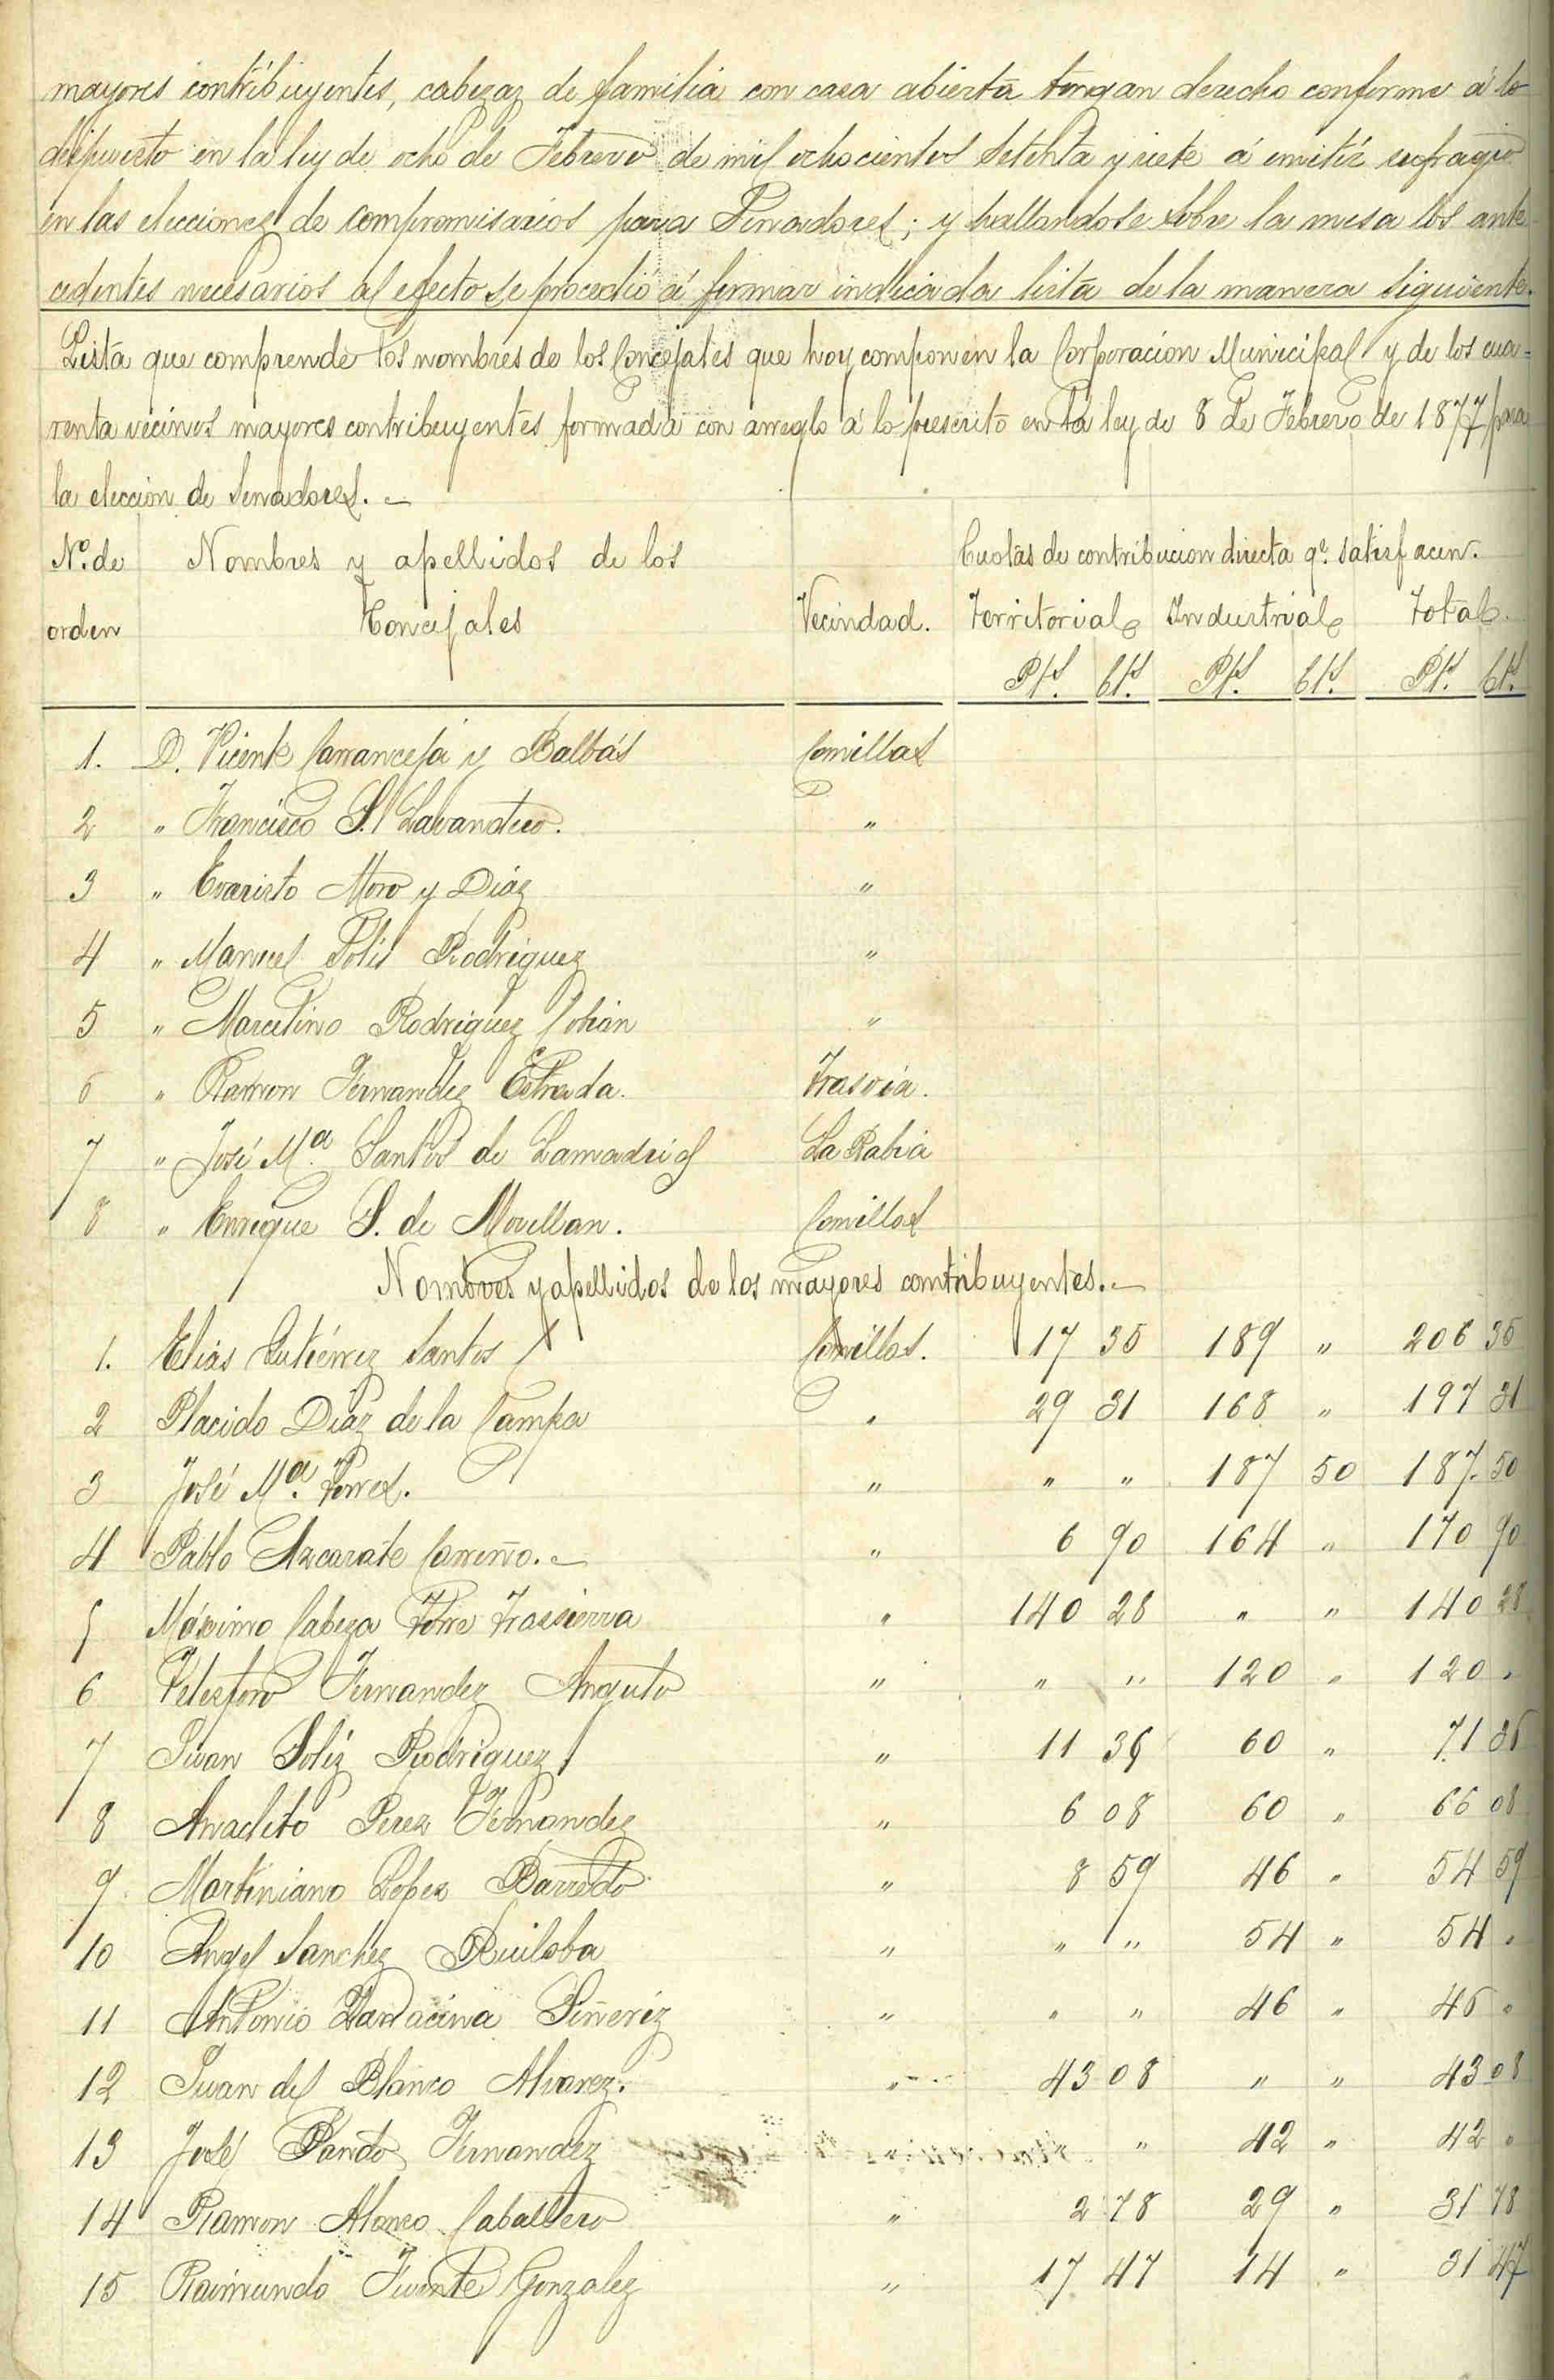 mayores contribuyentes, cabezaz de familia con casa abierta tengan derecho conforme á lo
dispuesto en la ley de ocho de Febrero de mil ochocientos setenta y siete á emitir sufragio
en las elecciones de compromisarios para Senadores; y hallandose sobre la mesa los ante-
cedentes necesarios al efecto se procedió á formar indicada lista de la manera siguiente.
Lista que comprende los nombres de los Concejales que hoy componen la Corporacion Municipal y de los cua=
renta vecinos mayores contribuyentes formada con arreglo á lo prescrito en la ley de 8 de Febrero de 1877 para
la elección de Senadores.
Nº. de Nombres y apellidos de los Cuotas de contribucion directa qe. satisfacen.
orden Concejales Vecindad. Territorial Industrial Total
Pts. Cts. Pts. Cts. Pts. Cts.
1. D. Vicente Carranceja y Balbás Comillas
2 " Francisco S. Lavandero. "
3 " Evaristo Moro y Diáz "
4 " Manuel Solis Rodriguez "
5 " Marcelino Rodriguez Cobian "
6 " Ramon Fernandez Estrada. Trasvia.
7 " José Mª. Santos de Lamadrid La Rabia
8 " Enrique S. de Movellan. Comillas
Nombres y apellidos de los mayores contribuyentes.
1. Elias Gutiérrez Santos Comillas. 17 35 189 " 206 35
2 Placido Diáz de la Campa " 29 31 168 " 197 31
3 José Mª. Torres. " " " 187 50 187. 50
4 Pablo Azcarate Carreño. " 6 90 164 " 170 90
5 Máximo Cabeza Torre Trassierra " 140 28 " " 140 28
6 Telesforo Fernandez Angulo " " " 120 " 120 "
7 Juan Soliz Rodriguez " 11 36 60 " 71 36
8 Anacleto Perez Fernandez " 6 08 60 " 66 08
9 Martiniano Lopez Barredo " 8 59 46 " 54 59
10 Angel Sanchez Ruiloba " " " 54 " 54 "
11 Antonio Siñeriz " " " 46 " 46 "
12 Juan del Blanco Alvarez. " 43 08 " " 43 08
13 José Pando Fernandez " " " 42 " 42 "
14 Ramon Alonso Caballero " 2 78 29 " 31 78
15 Raimundo Fuente Gonzalez " 17 47 14 " 31 47